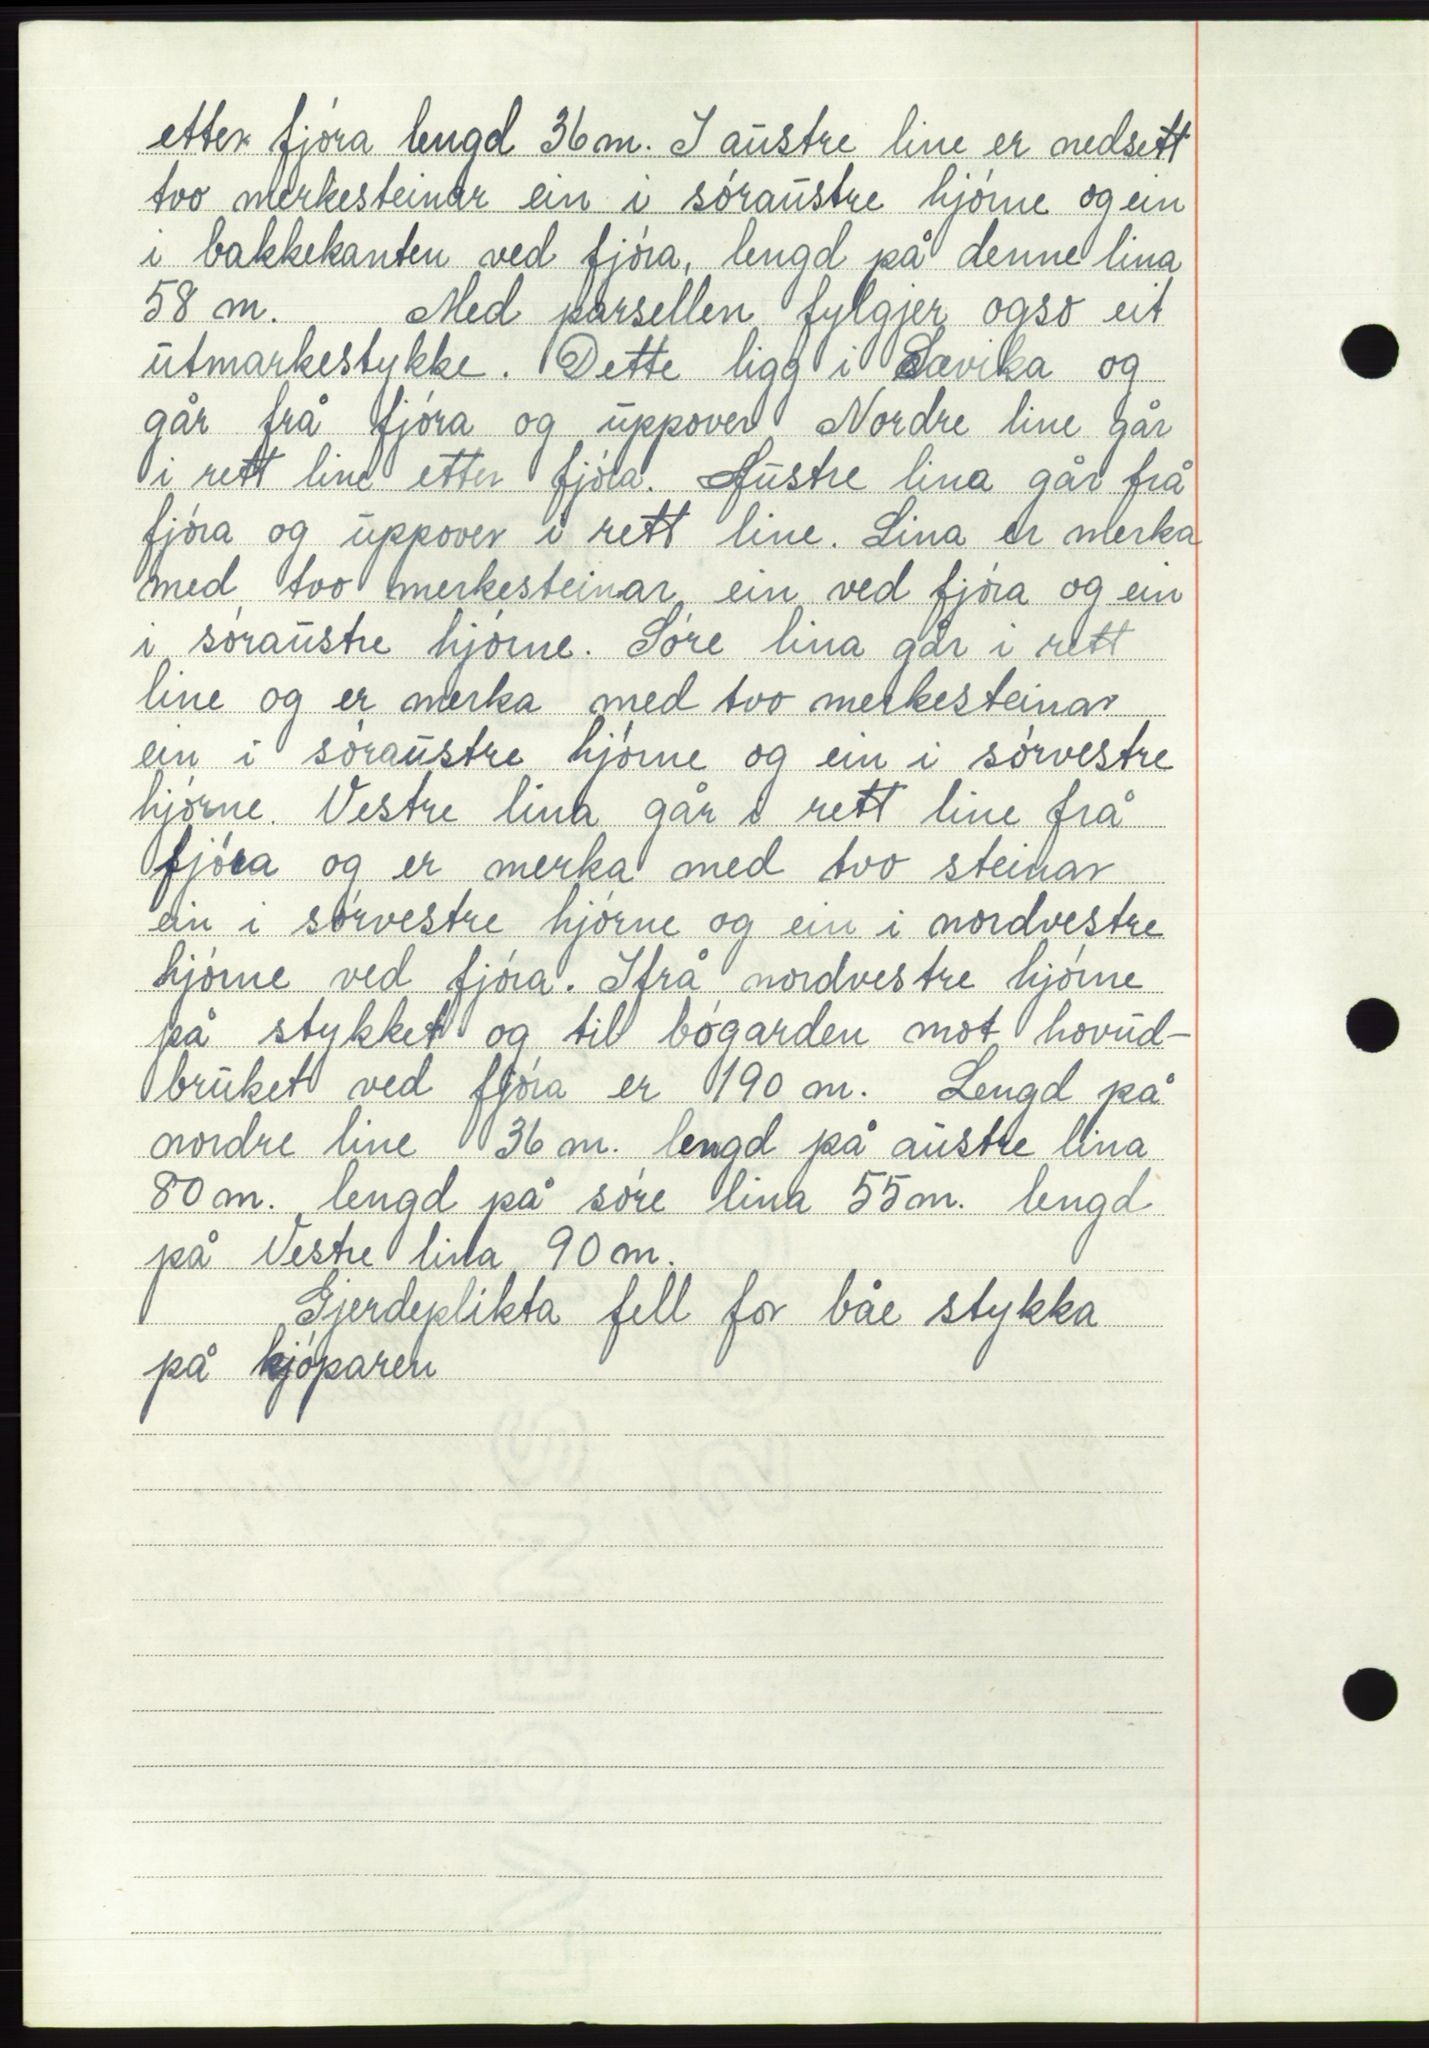 etter fjóra lengd 36 m. I austre line er nedsett
tvo merkesteinar ein i sóraustre hjórne og ein
i bakkekanten ved fjóra, lengd på denne lina
58 m. Med parsellen fylgjer ogso eit
utmarkestykke. Dette ligg i Sævika og
går frå fjóra og uppover Nordre line går
i rett line etter fjóra. Austre lina går frå
fjóra og uppover i rett line. Lina er merka
med tvo merkesteinar ein ved fjóra og ein
i sóraustre hjórne. Sóre lina går i rett
line og er merka med tvo merkesteinar
ein i sóraustre hjórne og ein i sórvestre
hjórne. Vestre lina går i rett line frå
fjóra og er merka med tvo steinar
ein i sórvestre hjórne og ein i nordvestre
hjórne ved fjóra. Ifrå nordvestre hjórne
på stykket og til bógarden mot hovud-
bruket ved fjóra er 190 m. Lengd på
nordre line 36 m. lengd på austre lina
80 m. lengd på sóre lina 55 m. lengd
på Vestre lina 90 m.
Gjerdeplikta fell for båe stykka
på kjóparen